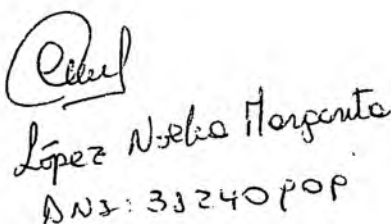 López Noelia Margarita
DNI: 33240909